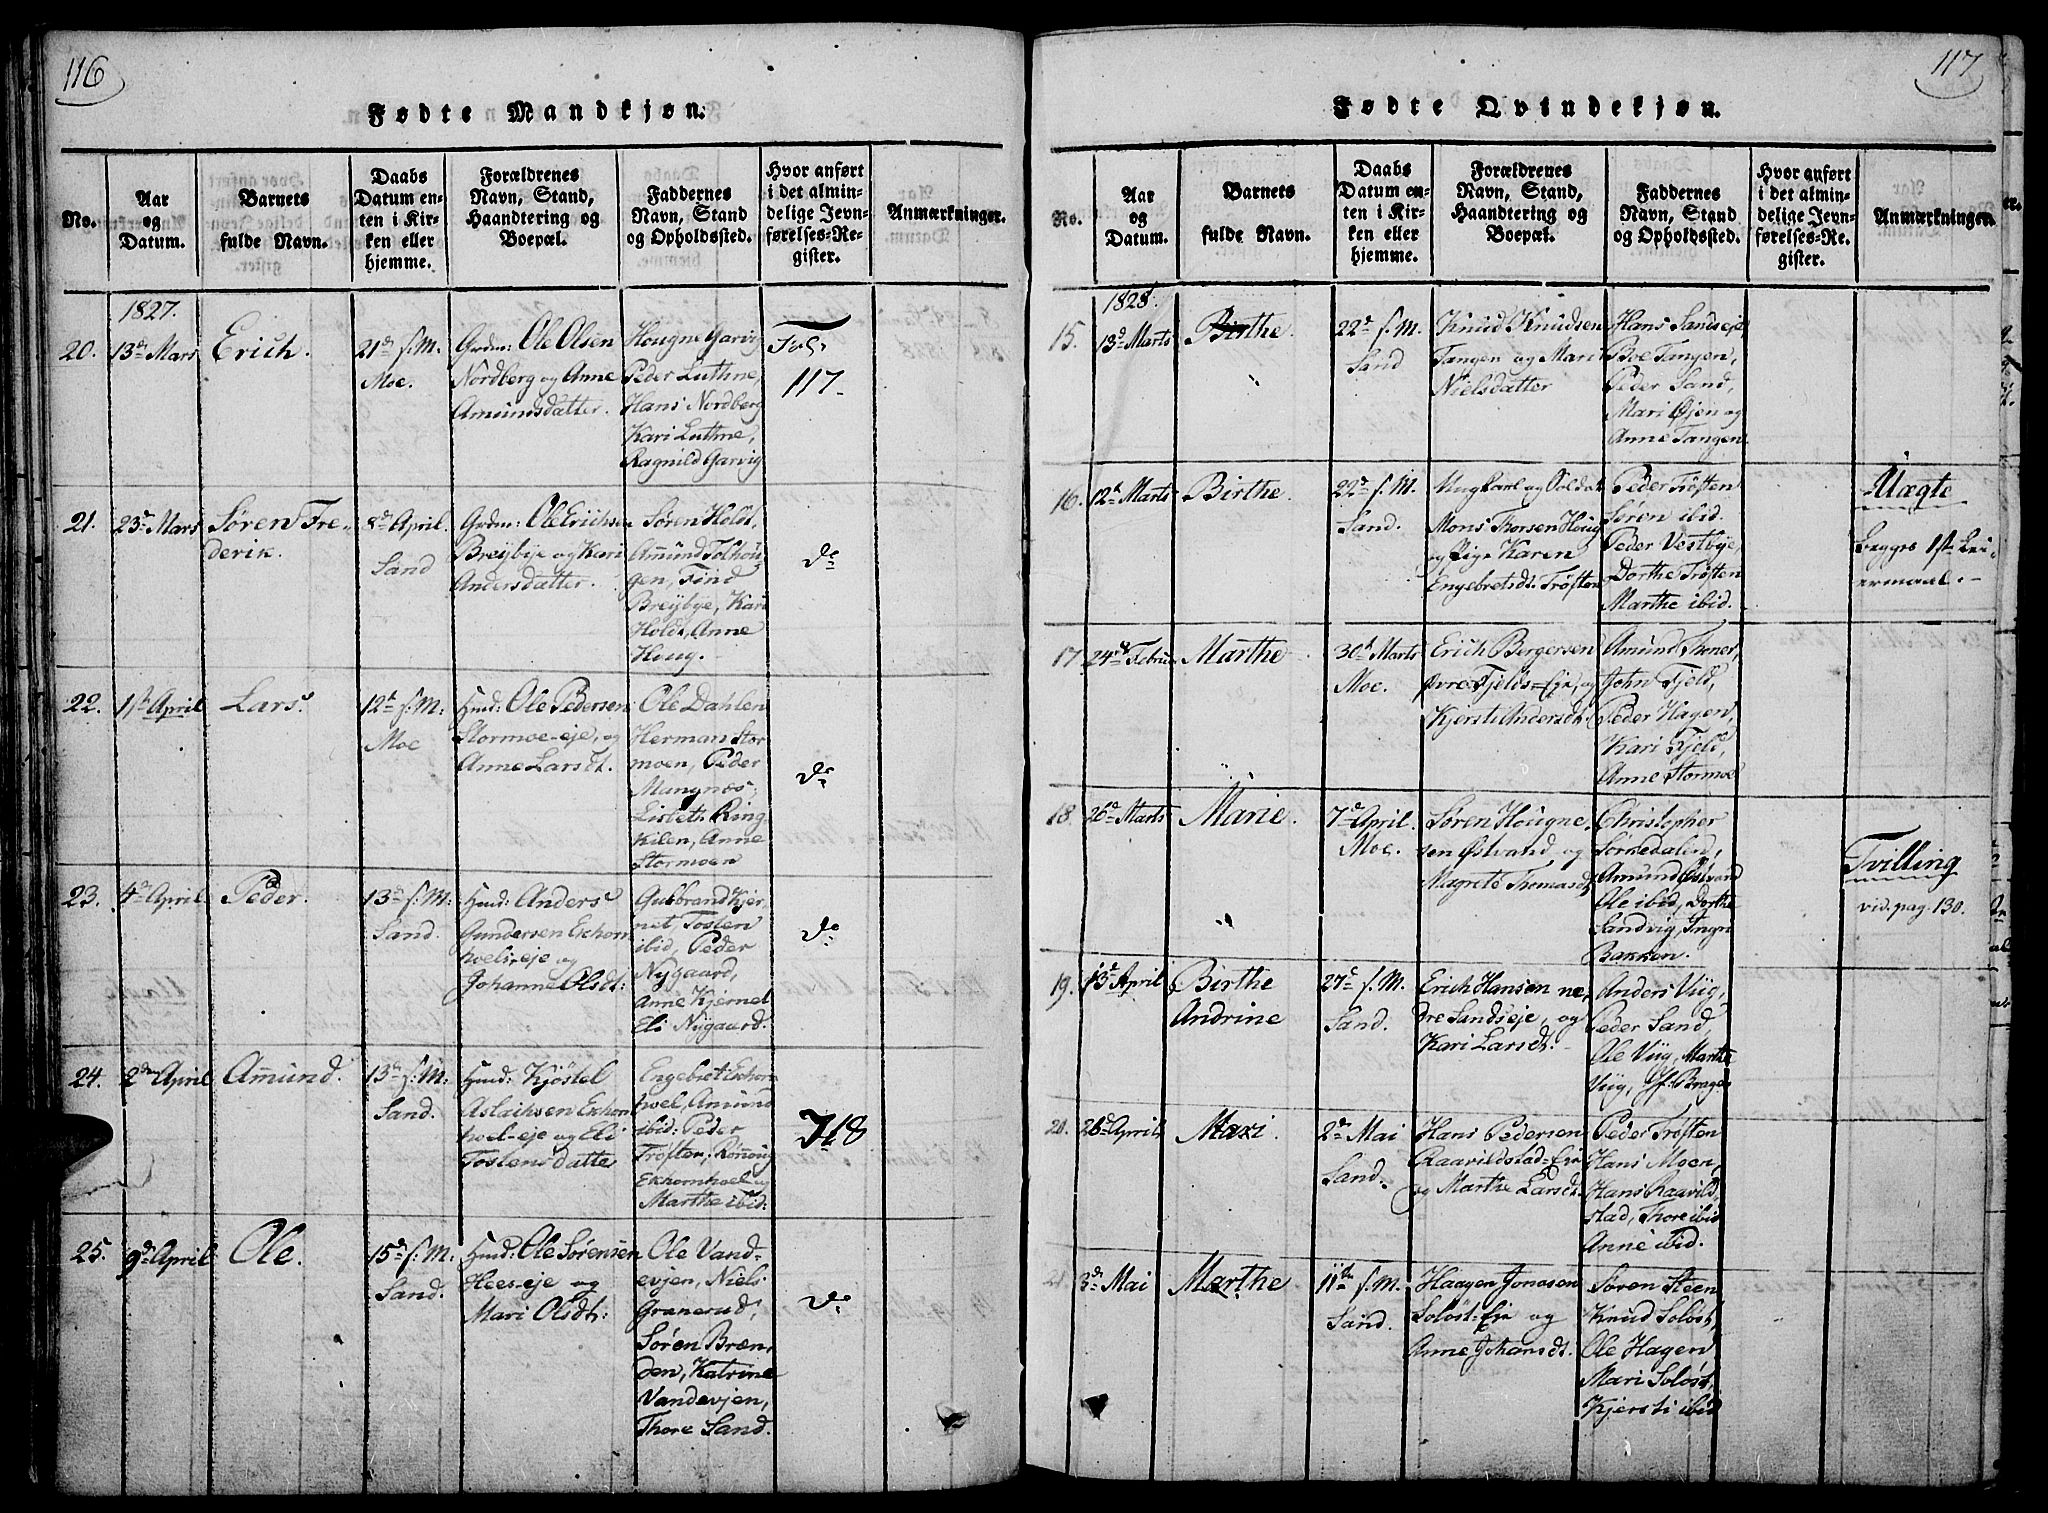 116
Fødte Mandkjøn.
No.
Aar
og
Datum.
Barnets
fulde Navn.
Daabs
Datum en-
ten i Kir-
ken eller
hjemme.
Forældrenes
Navn, Stand,
Haandtering og
Boepæl.
Faddernes
Navn, Stand
og Opholdssted.
Hvor anført
i det almin-
delige Jevn-
førelses-Re-
gister.
Anmærkninger.
1827.
20.
13de Mars
Erich.
21de s. M.
Moe.
Grdm: Ole Olsen
Nordberg og Anne
Amundsdatter.
Hougne Garvig
Peder Luthne,
Hans Nordberg
Kari Luthne,
Ragnild Garvig
Fol.
117.
21.
23de Mars
Søren Fre-
derik.
8de April.
Sand
Grdm: Ole Erichsen
Breÿbÿe og Kari
Andersdatter.
Søren Holdt,
Amund Tolhou-
gen, Find
Breÿbÿe, Kari
Holdt, Anne
Houg.
do
22.
1ste April
Lars.
12te s. M:
Moe
Huusmd: Ole Pedersen
Stormoe-eje, og
Anne Larsdt.
Ole Dahlen
Herman Stor
moen, Peder
Mangnæs,
Lisbeth Ring-
kilen, Anne
Stormoen
do
23.
4de April
Peder.
13de s. M.
Sand.
Huusmd: Anders
Gundersen Ekhorn
hoels-eje og
Johanne Olsdt:
Gulbrand Kjer
net, Tosten
ibid, Peder
Nygaard,
Anne Kjernet
Eli Nygaard.
do
24.
2den April
Amund.
13de s. M:
Sand.
Huusmd: Kjøstel
Aslachsen Ekhorn
hoel-eje og Eli
Tostensdatter
Engebret Ekhorn
hoel, Amund
ibid: Peder
Trøften, Rønnoug
Ekhornhoel og
Marthe ibid:
118
25.
9de April
Ole.
15de s. M:
Sand.
Huusmd: Ole Sørensen
Hees-eje og
Mari Olsdt:
Ole Vand-
evjen, Niels
Granerud,
Søren Bræn-
den, Katrine
Vandevjen,
Thore Sand.
do
117
Fødte Qvindekjøn.
No.
Aar
og
Datum.
Barnets
fulde Navn.
Daabs
Datum en-
ten i Kir-
ken eller
hjemme.
Forældrenes
Navn, Stand,
Haandtering og
Boepæl.
Faddernes
Navn, Stand
og Opholdssted.
Hvor anført
i det almin-
delige Jevn-
førelses-Re-
gister.
Anmærkninger.
1828.
15.
13de Marts
Birthe.
22de s. M.
Sand
Knud Knudsen
Tangen og Mari
Nielsdatter
Hans Sandseje
Boe Tangen,
Peder Sand,
Mari Øjen og
Anne Tangen
16.
12te Marts
Birthe.
22de s. M.
Sand.
Ungkarl og Soldat
Mons Thorsen Houg
og Pige Karen
Engebretsdt. Trøften
Peder Trøften
Søren ibid.
Peder Vestbye,
Dorthe Trøften
Marthe ibid.
Uægte
begges 1ste Lei-
ermaal.
17
24de Febru
Marthe
30te Marts
Moe.
Erich Bergersen
øvre Fjelds-Eje, og
Kjersti Andersdt.
Amund Thoner,
John Fjeld,
Peder Hagen,
Kari Fjeld,
Anne Stormoe
18.
26de Marts
Marie.
7de April.
Moe.
Søren Hougne-
sen Østvand og
Magrete Thomasdt
Christopher
Sørkedalen,
Amund Østvand
Ole ibid, Dorthe
Sandvig, Ingri
Bakken.
Tvilling
vid. pag. 130.
19.
13de April
Birthe
Andrine
27de s. M.
Sand.
Erich Hansen ne-
dre Sandseje, og
Kari Larsdt.
Anders Viig,
Peder Sand,
Ole Viig, Marthe
Viig, Jf: Bragen
20.
26de April
Mari.
2den Mai
Sand.
Hans Pedersen
Raavildstad-Eje
og Marthe Larsdt.
Peder Trøften
Hans Moen,
Hans Raavild
stad, Thore ibid
Anne ibid.
21
3de Mai
Marthe
11te s. M.
Sand.
Haagen Jonasen
Soløst-Eje og
Anne Johansdt.
Søren Steen
Knud Soløst,
Ole Hagen
Mari Soløst,
Kjersti ibid